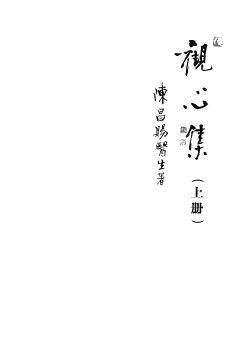 觀心集
（上册）
陳昌賜醫生著